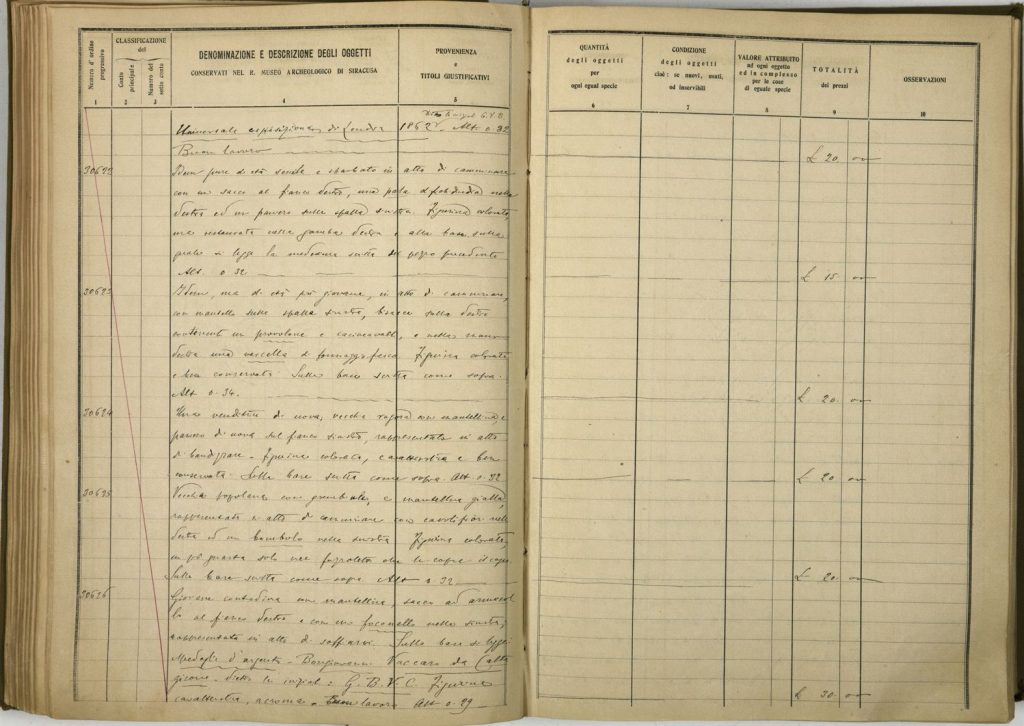 Numero d'ordine progressivo
CLASSIFICAZIONE del
Conto principale
Numero del sotto conto
DENOMINAZIONE E DESCRIZIONE DEGLI OGGETTI
CONSERVATI NEL R. MUSEO ARCHEOLOGICO DI SIRACUSA
PROVENIENZA
e
TITOLI GIUSTIFICATIVI
1 2 3 4 5
Universale esposizione di Londra 1862. Alt 0.32
Buon lavoro
30622 Idem pure di età senile e sbarbato in atto di camminare
con un sacco al fianco destro, una pala nella
destra ed un paniere sulla spalla sinistra. Figurina colorata,
ma restaurata nella gamba destra e alla base sulla
quale si legge la medesima scritta del pezzo precedente
Alt. 0.32
30623 Idem, ma di età più giovane, in atto di camminare,
con mantello sulla spalla sinistra, bisaccia sulla destra
contenente un provolone e caciocavalli, e nella mano
destra una vascella di formaggio fresco. Figurina colorata
e ben conservata. Sulla base scritta come sopra.
Alt. 0.34.
30624 Una venditrice di uova, vecchia rugosa con mantellina, e
paniere di uova sul fianco sinistro, rappresentata in atto
di bandizzare. Figurina colorata, caratteristica e ben
conservata. Sulla base scritta come sopra. Alt 0.32
30625 Vecchia popolana con grembiale, e mantellina gialla,
rappresentata in atto di camminare con cavolifiori nella
destra ed un bambolo nella sinistra. Figurina colorata,
un pò guasta solo nel fazzoletto che le copre il capo
Sulla base scritta come sopra Alt 0.32
30626 Giovane contadina con mantellina, sacco ad armacol
lo al fianco destro e con un foconello nella sinistra,
rappresentata in atto di soffiarvi. Sulla base si legge:
Medaglia d'argento - Bongiovanni Vaccaro da Calta
girone. Dietro le iniziali: G. B. V. C. Figurina
caratteristica, acroma e buon lavoro Alt 0.29
QUANTITÀ
degli oggetti
per
ogni egual specie
CONDIZIONE
degli oggetti
cioè: se nuovi, usati,
od inservibili
VALORE ATTRIBUITO
ad ogni oggetto
ed in complesso
per le cose
di eguale specie
TOTALITÀ
dei prezzi
OSSERVAZIONI
6 7 8 9 10
£ 20 00
£ 15 00
£ 20 00
£ 20 00
£ 20 00
£ 30 00